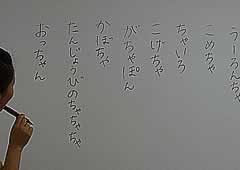 うーろんちゃ
こめちゃ
ちゃいろ
こげちゃ
がちゃぽん
かぼちゃ
たんじょうびのちゃちゃちゃ
おっちゃん